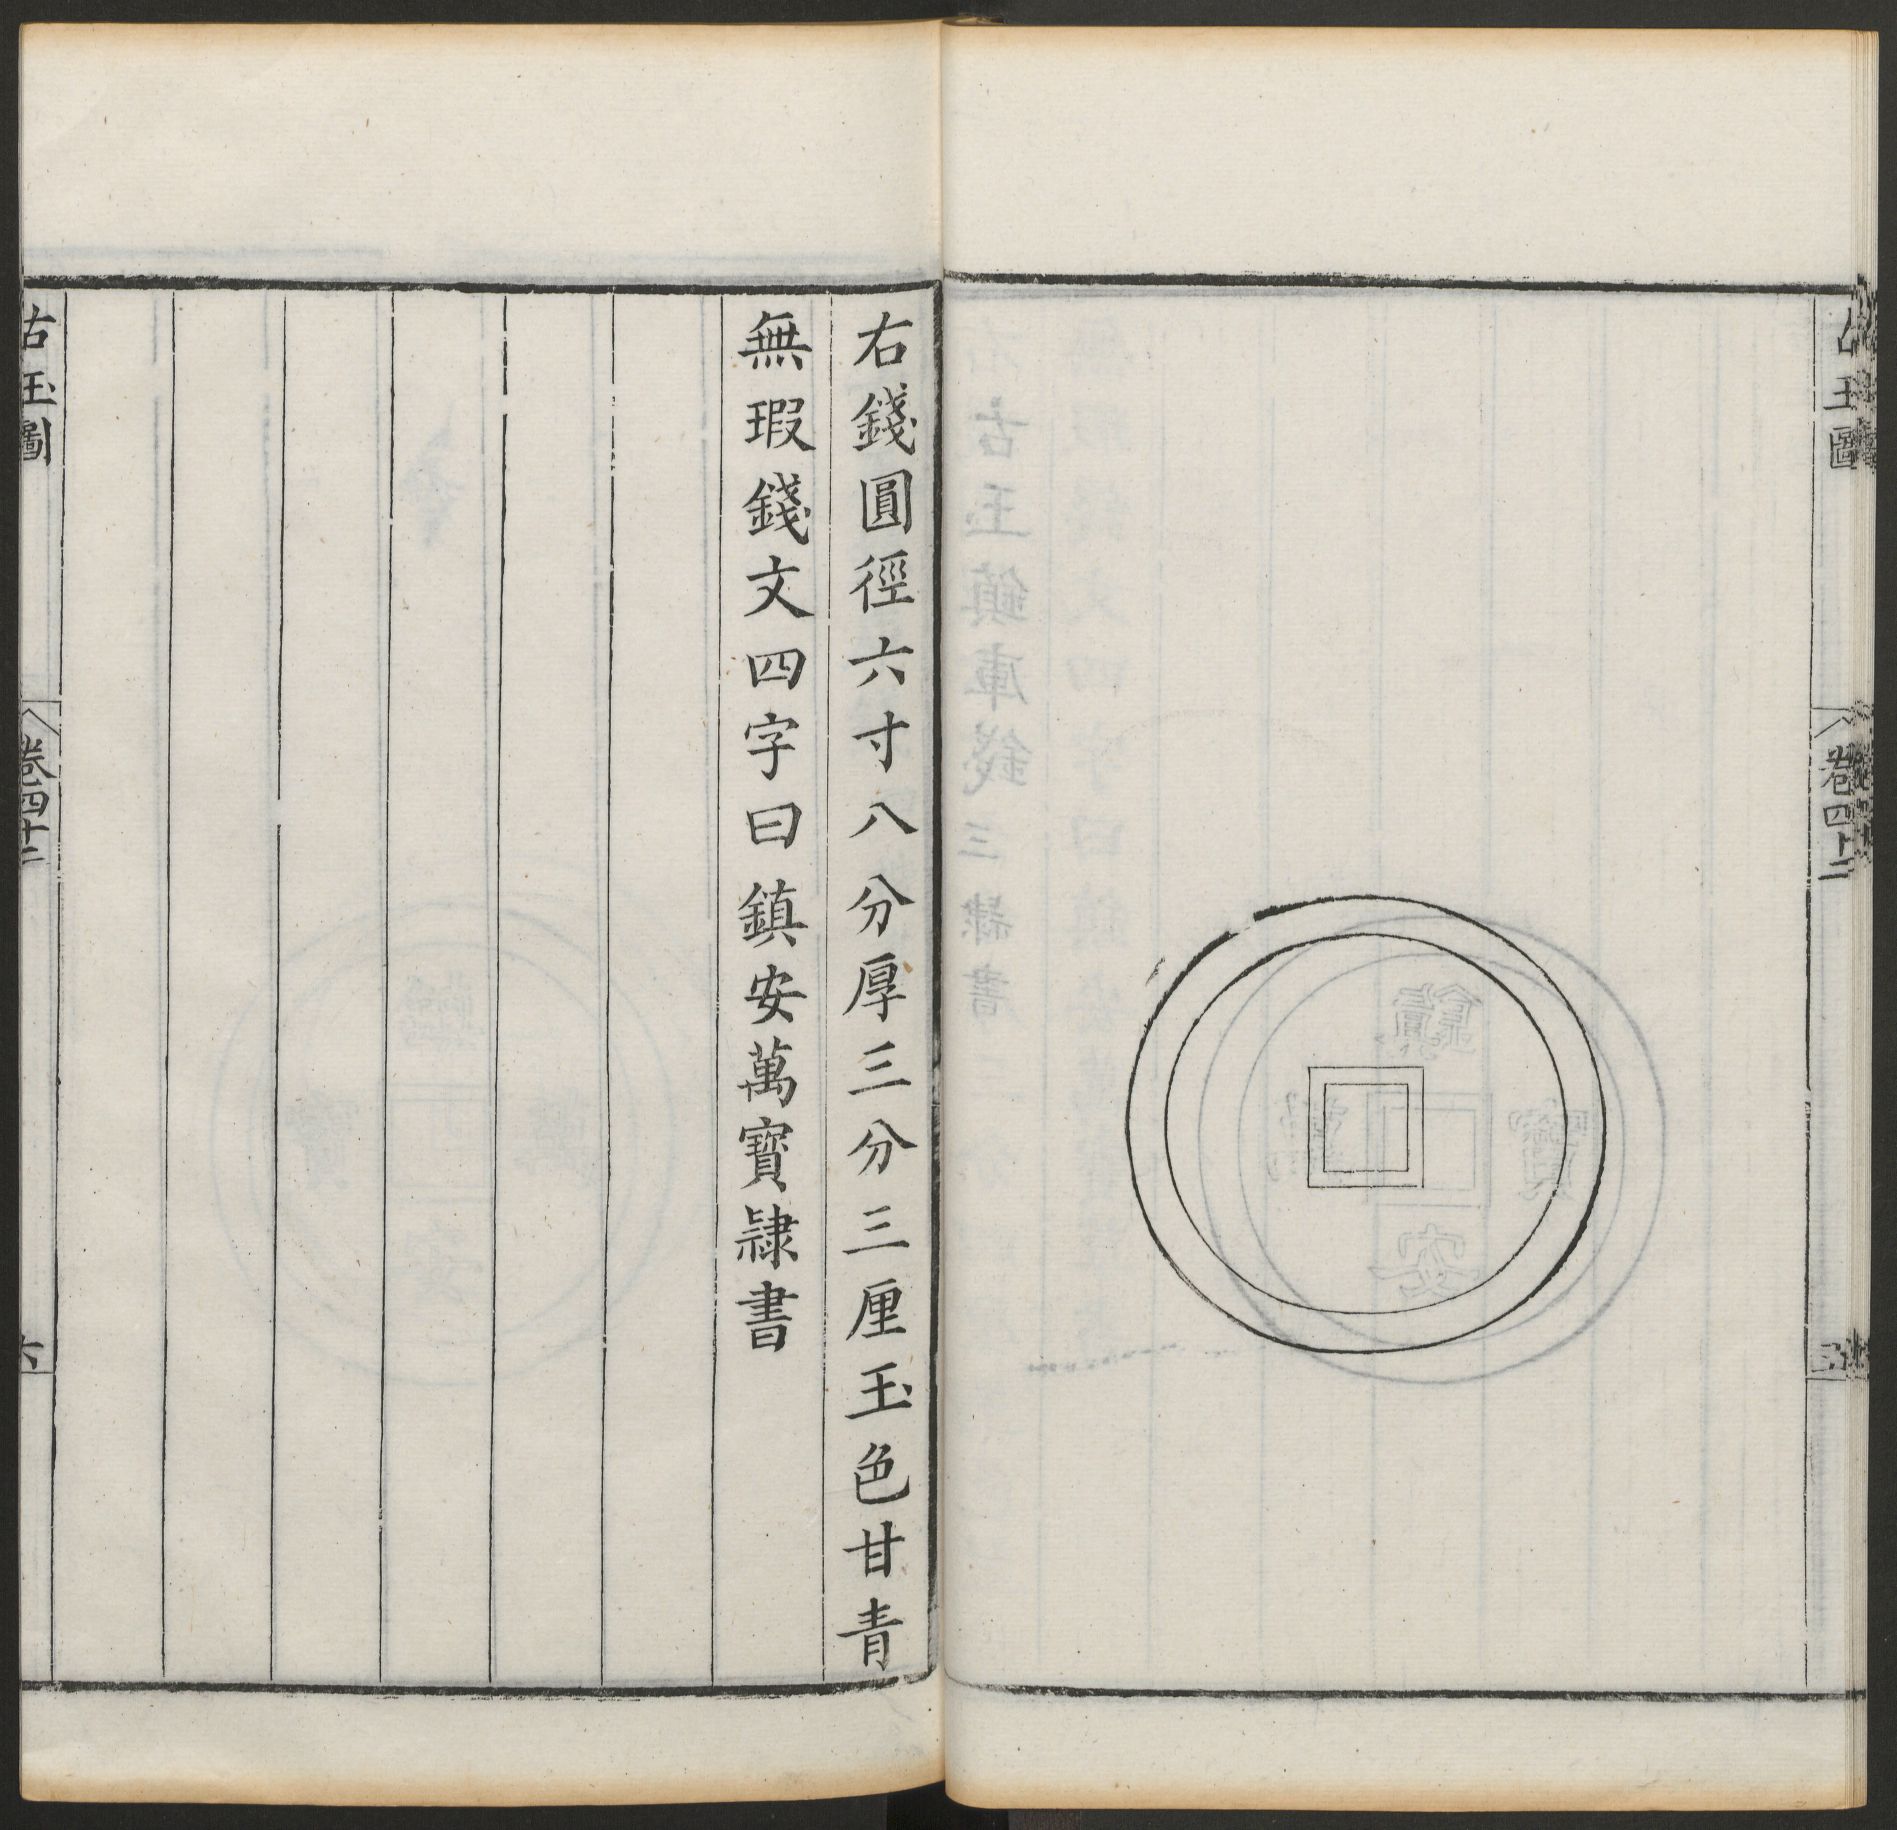 古玉圖
卷四十二
右錢圓徑六寸八分厚三分三厘玉色甘青
無瑕錢文四字曰鎮安萬寶隷書
古玉圖
卷四十二
六